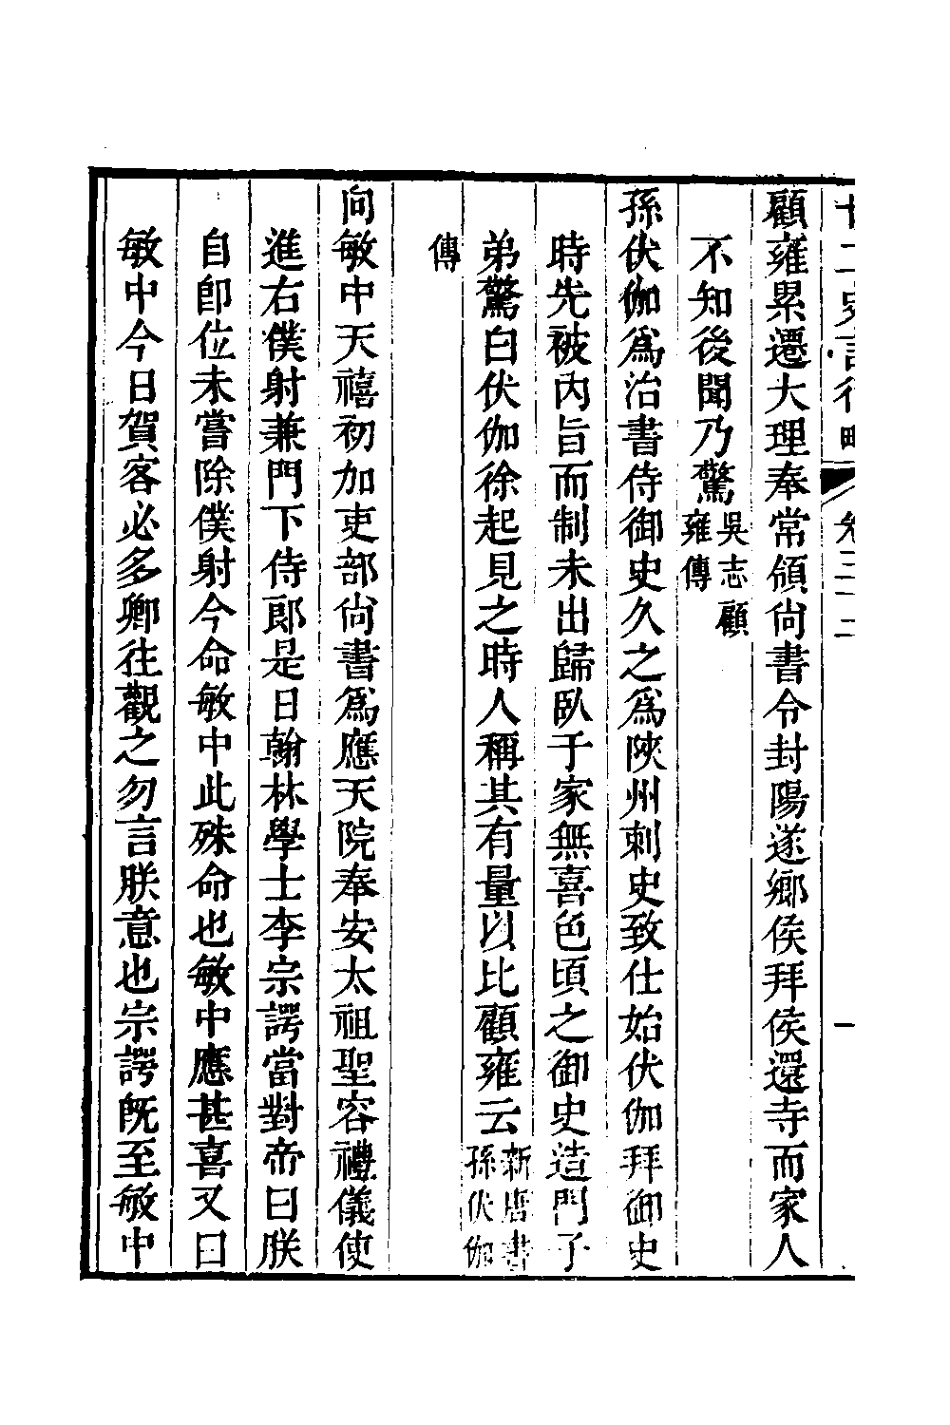 顧雍累遷大理奉常領尚書令封陽遂鄉侯拜侯還寺而家人
不知後聞乃驚吳志顧雍傳
孫伏伽爲治書侍御史久之爲陜州刺史致仕始伏伽拜御史
時先被內旨而制未出歸臥于家無喜色頃之御史造門子
弟驚白伏伽徐起見之時人稱其有量以比顧雍云新唐書孫伏伽
傳
向敏中天禧初加吏部尚書爲應天院奉安太祖聖容禮儀使
進右僕射兼門下侍郎是日翰林學士李宗諤當對帝曰朕
自卽位未嘗除僕射今命敏中此殊命也敏中應甚喜又曰
敏中今日賀客必多卿往觀之勿言朕意也宗諤旣至敏中